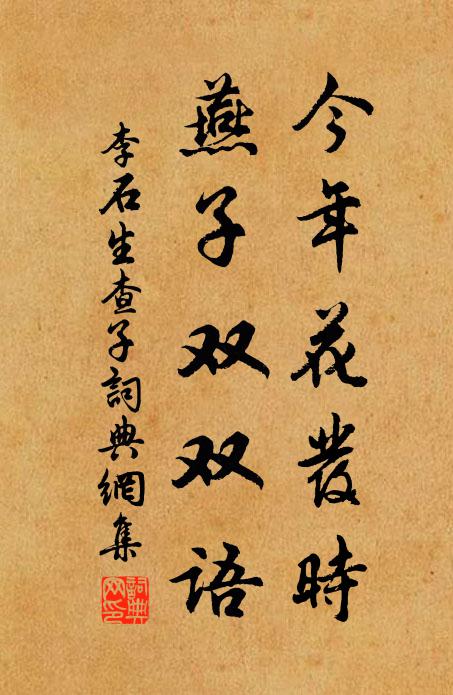 今年花發時
燕子双双语
李石生查子詞典網集
詞典网印